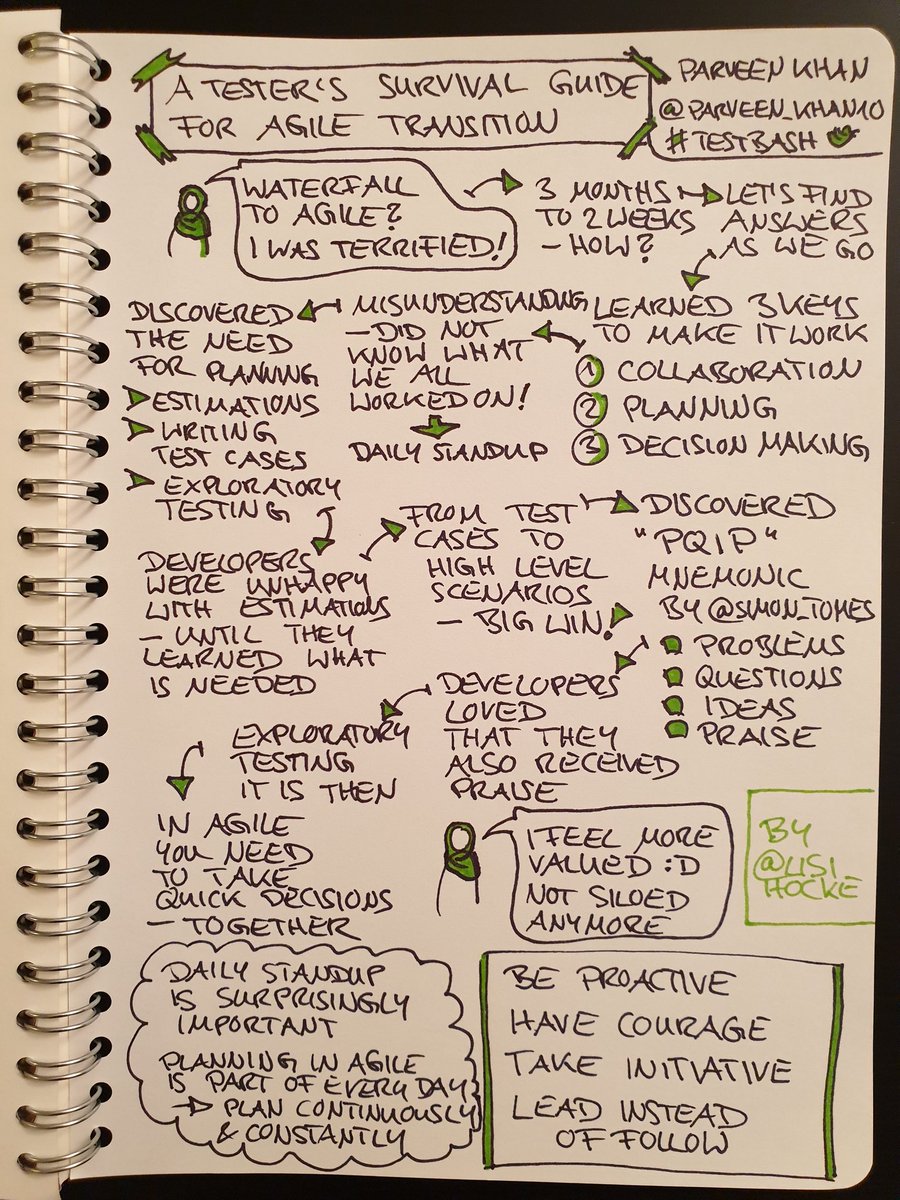 A TESTER'S SURVIVAL GUIDE
FOR AGILE TRANSITION
PARVEEN KHAN
@PARVEEN_KHAN10
#TESTBASH
WATERFALL
TO AGILE?
I WAS TERRIFIED!
3 MONTHS
TO 2 WEEKS
- HOW?
LET'S FIND
ANSWERS
AS WE GO
LEARNED 3 KEYS
TO MAKE IT WORK
1 COLLABORATION
2 PLANNING
3 DECISION MAKING
MISUNDERSTANDING
- DID NOT
KNOW WHAT
WE ALL
WORKED ON!
DAILY STANDUP
DISCOVERED
THE NEED
FOR PLANNING
ESTIMATIONS
WRITING
TEST CASES
EXPLORATORY
TESTING
DEVELOPERS
WERE UNHAPPY
WITH ESTIMATIONS
- UNTIL THEY
LEARNED WHAT
IS NEEDED
FROM TEST
CASES TO
HIGH LEVEL
SCENARIOS
- BIG WIN!
DISCOVERED
"PQIP"
MNEMONIC
BY @SIMON_TOMES
PROBLEMS
QUESTIONS
IDEAS
PRAISE
DEVELOPERS
LOVED
THAT THEY
ALSO RECEIVED
PRAISE
EXPLORATORY
TESTING
IT IS THEN
IN AGILE
YOU NEED
TO TAKE
QUICK DECISIONS
- TOGETHER
I FEEL MORE
VALUED :D
NOT SILOED
ANYMORE
BY
@LISI
HOCKE
DAILY STANDUP
IS SURPRISINGLY
IMPORTANT
PLANNING IN AGILE
IS PART OF EVERY DAY
→ PLAN CONTINUOUSLY
& CONSTANTLY
BE PROACTIVE
HAVE COURAGE
TAKE INITIATIVE
LEAD INSTEAD
OF FOLLOW